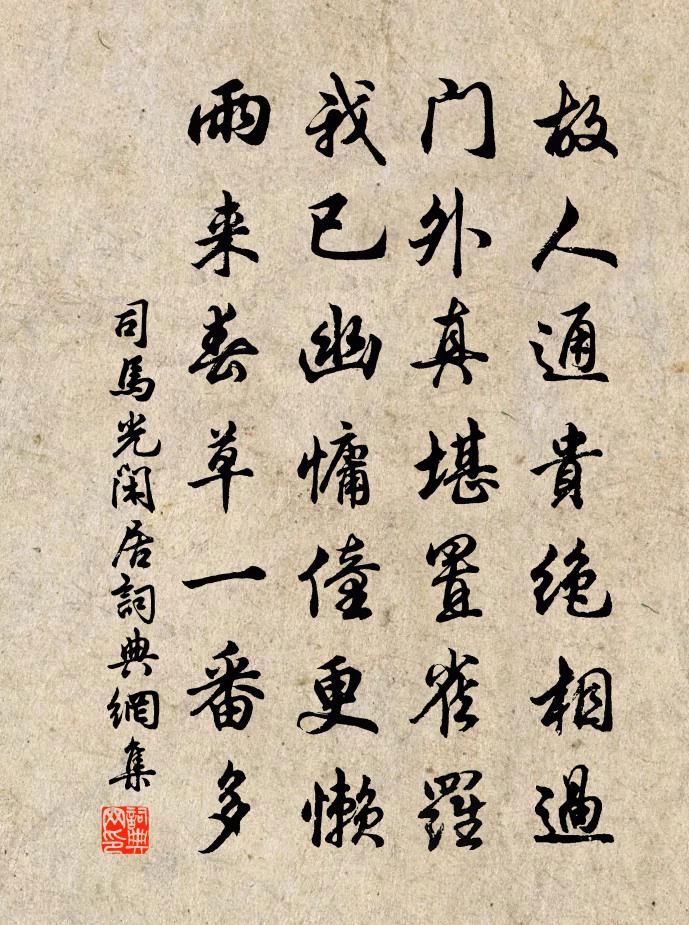 故人通貴絶相過
門外真堪置雀羅
我已幽慵僮更懶
雨来春草一番多
司馬光閑居詞典網集
詞典网印